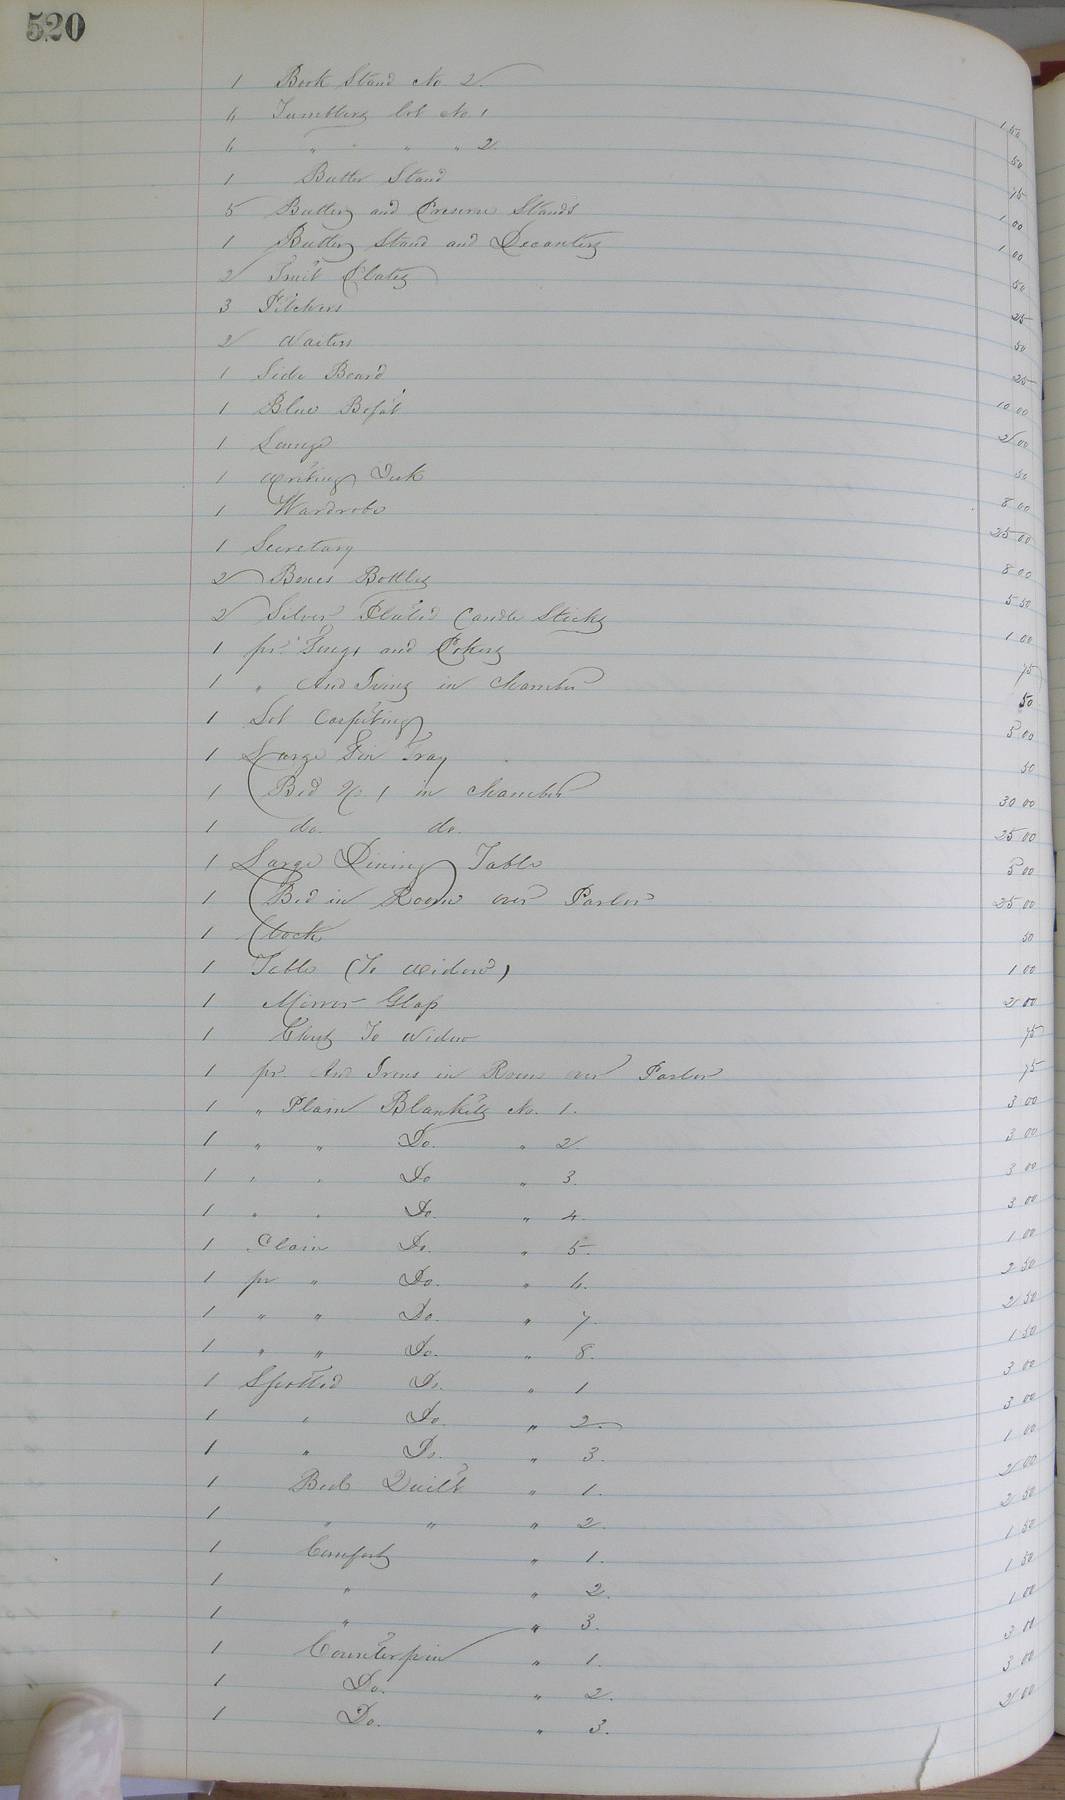 520
1 Book Stand No. 2. 1 50
6 Tumblers lot No. 1 50
6 " " " " 2. 75
1 Butter Stand 1 00
5 Butter and Preserve Stands 1 00
1 Butter Stand and Decanters 50
2 Fruit Plates 25
3 Pitchers 50
2 Waiters 25
1 Side Board 10 00
1 Blue Bofat 2 00
1 Lounge 50
1 Writing Desk 8 00
1 Wardrobe 25 00
1 Secretary 8 00
2 Bottles 5 50
2 Silver Plated Candle Sticks 1 00
1 pr. Tongs and Pokers 75
1 " And Irons in Chamber 50
1 Lot Carpeting 5 00
1 Large Tin Tray 50
1 Bed No 1 in Chamber 30 00
1 do. do. 25 00
1 Large Dining Table 5 00
1 Bed in Room over Parlor 25 00
1 Clock 50
1 Table (To Widow) 1 00
1 Mirror Glass 2 00
1 Chest To Widow 75
1 pr. And Irons in Room over Parlor 75
1 " Plain Blankets No. 1. 3 00
1 " " Do. " 2 3 00
1 " " Do " 3. 3 00
1 " " Do. " 4. 3 00
1 Plain Do. " 5. 1 00
1 pr " Do. " 6. 2 50
1 " " Do. " 7. 2 50
1 " " Do. " 8. 1 50
1 Spotted Do. " 1 3 00
1 " Do. " 2 3 00
1 " Do. " 3. 1 00
1 Bed Quilt " 1. 2 00
1 " " " 2. 2 50
1 Comfort " 1. 1 50
1 " " 2. 1 50
1 " " 3. 1 00
1 Counterpin " 1. 3 00
1 Do. " 2. 3 00
1 Do. " 3. 2 00